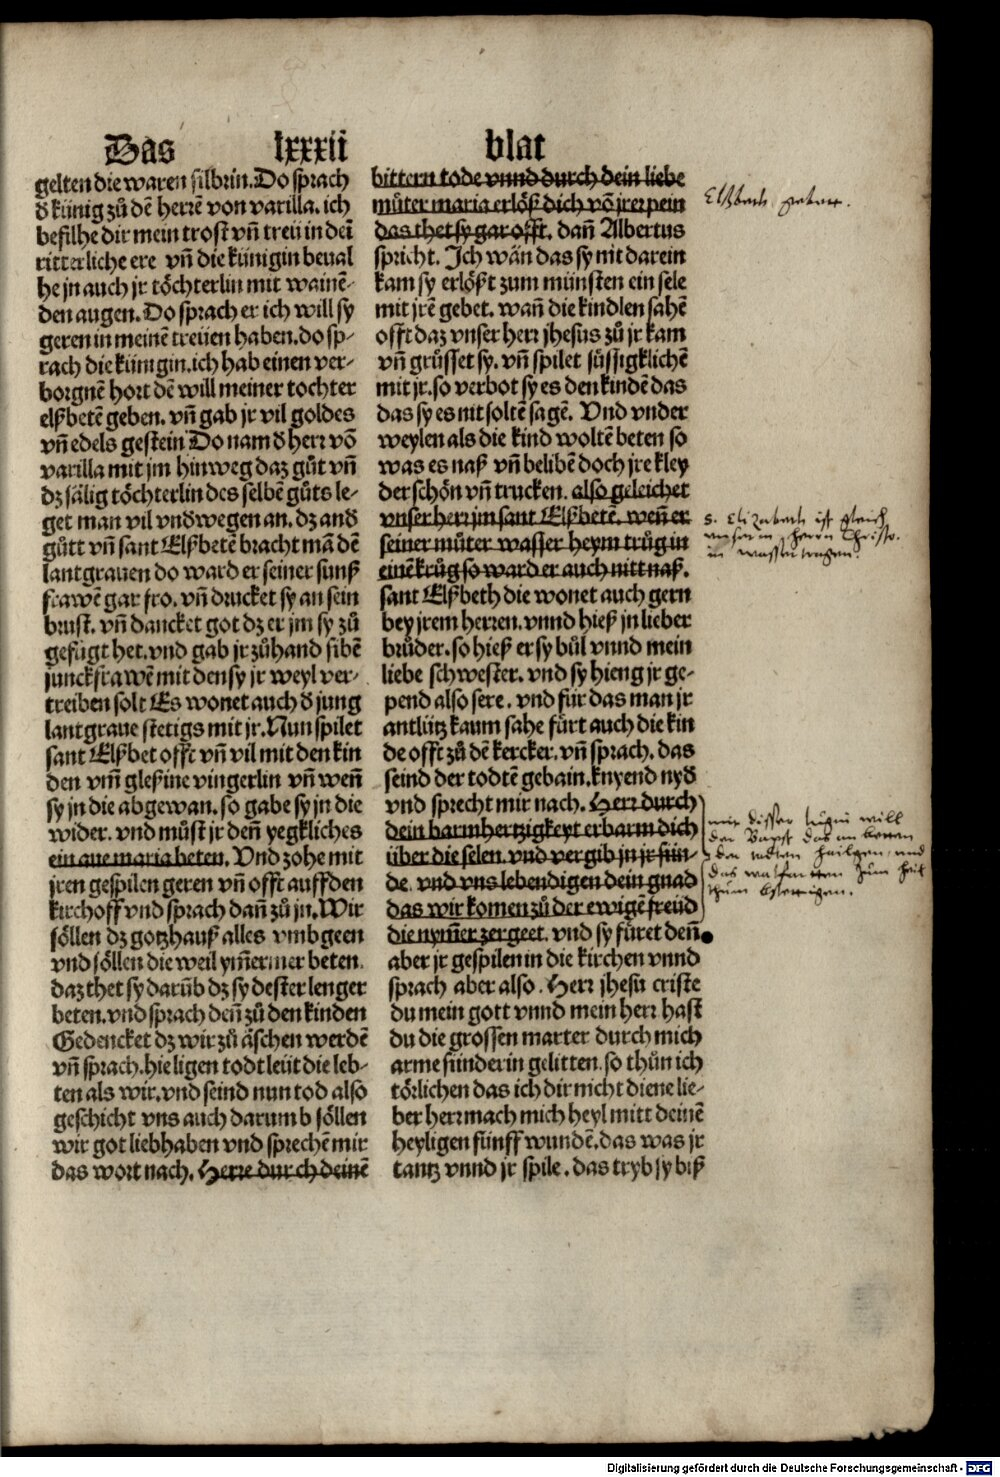 Das lxxxii blat
gelten die waren silbrin. Do sprach
d̕ künig zů dē herrē von varilla. ich
befilhe dir mein trost vn̄ treü in dein̄
ritterliche ere vn̄ die künigin beual
he jn auch jr töchterlin mit wainē-
den augen. Do sprach er ich will sy
geren in meinē treüen haben. do sp-
rach die künigin. ich hab einen ver-
borgnē hort dē will meiner tochter
elßbetē geben. vn̄ gab jr vil goldes
vn̄ edels gestein Do nam d̕ herr vō
varilla mit jm hinweg daz gůt vn̄
dz sälig töchterlin des selbē gůts le-
get man vil vnd wegen an. dz and̕
gůtt vn̄ sant Elßbetē bracht mā dē
lantgrauen do ward er seiner sunß
frawē gar fro. vn̄ drucket sy an sein
brust. vn̄ dancket got dz er jm sy zů
gefügt het. vnd gab jr zůhand sibē
junckfrawē mit den sy jr weyl ver-
treiben solt Es wonet auch d̕ jung
lantgraue stetigs mit jr. Nun spilet
sant Elßbet offt vn̄ vil mit den kin
den vm̄ gleßine vingerlin vn̄ wen̄
sy jn die abgewan. so gabe sy jn die
wider. vnd můst jr den̄ yegkliches
ein aue maria beten. Vnd zohe mit
jren gespilen geren vn̄ offt auff den
kirchoff vnd sprach dan̄ zů jn. Wir
söllen dz gotzhauß alles vmbgeen
vnd söllen die weil ym̄ermer beten.
daz thet sy darūb dz sy dester lenger
beten. vnd sprach den̄ zů den kinden
Gedencket dz wir zů äschen werdē
vn̄ sprach. hie ligen todt leüt die leb-
ten als wir. vnd seind nun tod also
geschicht vns auch darumb söllen
wir got liebhaben vnd sprechē mir
das wort nach. Herre durch deinē
bittern tode vnnd durch dein liebe
můter maria erlöß dich vō jrer pein
das thet sy gar offt. dan̄ Albertus
spricht. Ich wän das sy nit darein
kam sy erlößt zum münsten ein sele
mit jrē gebet. wan̄ die kindlen sahē
offt daz vnser herr jhesus zů jr kam
vn̄ grüsset sy. vn̄ spilet süssigklichē
mit jr. so verbot sy es den kindē das
das sy es nit soltē sagē. Vnd vnder
weylen als die kind woltē beten so
was es naß vn̄ belibē doch jre kley
der schön vn̄ trucken. also geleichet
vnser herr jm sant Elßbetē. wen̄ er
seiner můter wasser heym trůg in
einē krůg so ward er auch nitt naß.
sant Elßbeth die wonet auch gern
bey jrem herren. vnnd hieß jn lieber
brůder. so hieß er sy bůl vnnd mein
liebe schwester. vnd sy hieng jr ge-
pend also sere. vnd für das man jr
antlütz kaum sahe fürt auch die kin
de offt zů dē kercker. vn̄ sprach. das
seind der todtē gebain. knyend nyd̕
vnd sprecht mir nach. Herr durch
dein barmhertzigkeyt erbarm dich
über die selen. vnd vergib jn jr sün-
de. vnd vns lebendigen dein gnad
das wir komen zů der ewigē freüd
die nym̄er zergeet. vnd sy füret den̄
aber jr gespilen in die kirchen vnnd
sprach aber also. Herr jhesu criste
du mein gott vnnd mein herr hast
du die grossen marter durch mich
arme sünderin gelitten. so thůn ich
törlichen das ich dir nicht diene lie-
ber herr mach mich heyl mitt deinē
heyligen fünff wundē. das was jr
tantz vnnd jr spile. das tryb sy biß
S. Elizabeth ist gleich
unserm Herrn Christo.
in wasser tragen.
mit disser lugin will
der Bapst das
den todten heilgen und
das walfartten zum heil
thum
Digitalisierung gefördert durch die Deutsche Forschungsgemeinschaft - DFG